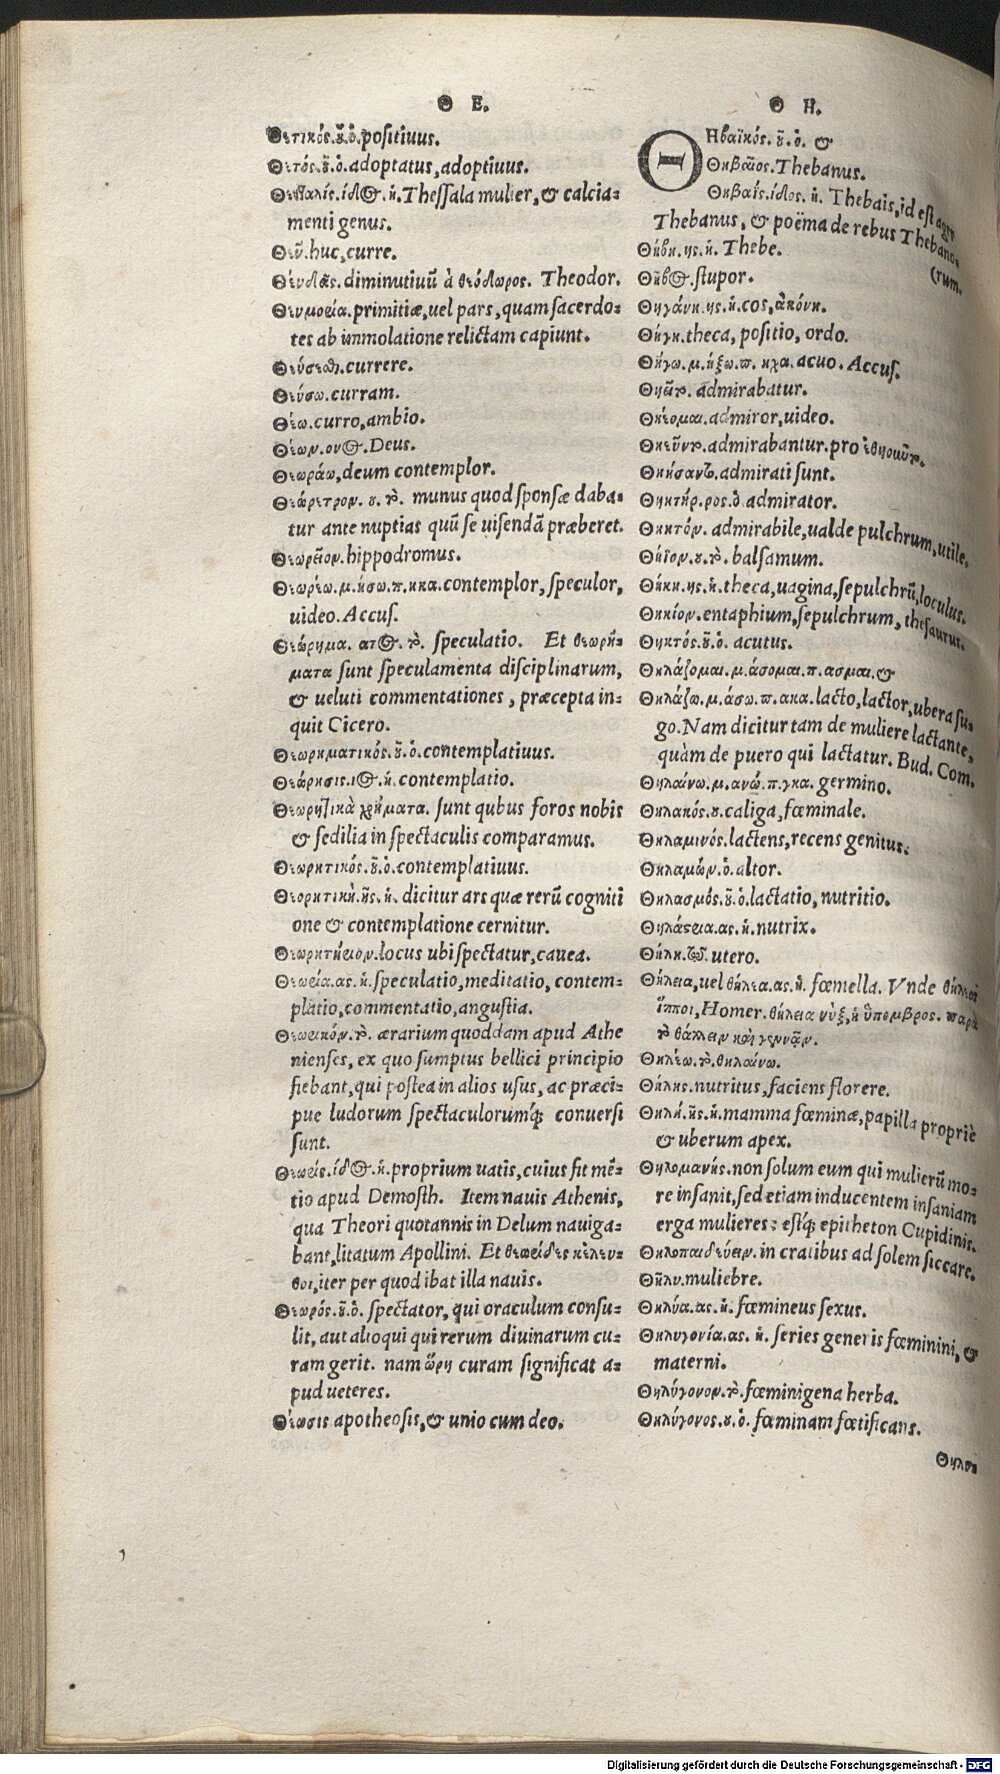 Θ Ε.
Θετικός.ȣ̃.ὁ.positiuus.
Θετός.ȣ̃.ὁ.adoptatus,adoptiuus.
Θετταλίς.ίδος.ἡ.Thessala mulier, & calcia-
menti genus.
Θεῦ.huc,curre.
Θευδᾶς.diminutiuũ à θεόδωρος. Theodor.
Θευμορία.primitiæ,uel pars, quam sacerdo-
tes ab immolatione relictam capiunt.
Θεύσεσθαι.currere.
Θεύσω.curram.
Θέω.curro,ambio.
Θέων.ονος.Deus.
Θεωράω,deum contemplor.
Θεώρετρον.ȣ.τὸ. munus quod sponsæ daba-
tur ante nuptias quũ se uisendã præberet.
Θεωρεῖον.hippodromus.
Θεωρέω.μ.ήσω.π.ηκα.contemplor, speculor,
uideo. Accus.
Θεώρημα. ατος. τὸ. speculatio. Et θεωρή-
ματα sunt speculamenta disciplinarum,
& ueluti commentationes, præcepta in-
quit Cicero.
Θεωρηματικός.ȣ̃.ὁ.contemplatiuus.
Θεώρησις.ιος.ἡ.contemplatio.
Θεωρητικὰ χρήματα. sunt qubus foros nobis
& sedilia in spectaculis comparamus.
Θεωρητικός.ȣ̃.ὁ.contemplatiuus.
Θεορητικὴ.ῆς.ἡ. dicitur ars quæ rerũ cogniti
one & contemplatione cernitur.
Θεωρητήριον.locus ubi spectatur, cauea.
Θεωρία.ας.ἡ.speculatio,meditatio, contem-
platio,commentatio,angustia.
Θεωρικόν.τὸ. ærarium quoddam apud Athe
nienses, ex quo sumptus bellici principio
fiebant,qui postea in alios usus, ac præci-
pue ludorum spectaculorumq́; conuersi
sunt.
Θεωρίς.ίδος.ἡ.proprium uatis, cuius fit mẽ-
tio apud Demosth. Item nauis Athenis,
qua Theori quotannis in Delum nauiga-
bant,litatum Apollini. Et θεωρίδες κέλευ-
θοι,iter per quod ibat illa nauis.
Θεωρός.ȣ̃.ὁ. spectator, qui oraculum consu-
lit, aut alioqui qui rerum diuinarum cu-
ram gerit. nam ὤρη curam significat a-
pud ueteres.
Θέωσις apotheosis,& unio cum deo.
Θ Η.
ΘΗβαϊκός. ȣ̃. ὁ. &
Θηβαῖος.Thebanus.
Θηβαΐς.ίδος. ἡ. Thebais,id est ager
Thebanus, & poëma de rebus Thebano-
(rum.
Θήβη.ης.ἡ. Thebe.
Θῆβος.stupor.
Θηγάνη.ης.ἡ.cos,ἀκόνη.
Θήγη.theca, positio, ordo.
Θήγω.μ.ήξω.π. ηχα.acuo. Accus.
Θηᾶτο. admirabatur.
Θηέομαι.admiror,uideo.
Θηεῦντο.admirabantur.pro ἐθηοιοῦντο.
Θηήσαντο.admirati sunt.
Θηητήρ.ρος.ὁ admirator.
Θηητόν. admirabile,ualde pulchrum,utile.
Θήϊον.ȣ.τὸ. balsamum.
Θήκη.ης.ἡ.theca,uagina,sepulchrũ,loculus.
Θηκίον.entaphium,sepulchrum, thesaurus.
Θηκτός.ȣ̃.ὁ. acutus.
Θηλάζομαι.μ.άσομαι.π.ασμαι.&
Θηλάζω.μ.άσω.π.ακα.lacto,lactor,ubera su-
go.Nam dicitur tam de muliere lactante,
quàm de puero qui lactatur. Bud. Com.
Θηλαίνω.μ.ανῶ.π.γκα. germino.
Θηλακός.ȣ.caliga, fœminale.
Θηλαμινός.lactens,recens genitus.
Θηλαμών.ὁ.altor.
Θηλασμός.ȣ̃.ὁ.lactatio, nutritio.
Θηλάστρια.ας.ἡ.nutrix.
Θήλη.τῷ. utero.
Θήλεια,uel θήλεα.ας.ἡ. fœmella. Vnde θήλειαι
ἵπποι, Homer. θήλεια νὺξ,ἡ ὕπομβρος. παρὰ
τὸ θάλλειν καὶ γεννᾶν.
Θηλέω.τὸ.θηλαίνω.
Θήλης.nutritus,faciens florere.
Θηλή.ῆς.ἡ.mamma fœminæ,papilla propriè
& uberum apex.
Θηλομανής.non solum eum qui mulierũ mo-
re insanit,sed etiam inducentem insaniam
erga mulieres: estq́; epitheton Cupidinis.
Θηλοπαιδεύειν.in cratibus ad solem siccare.
Θῆλυ.muliebre.
Θηλύα.ας.ἡ. fœmineus sexus.
Θηλυγονία.ας.ἡ. series generis fœminini, &
materni.
Θηλύγονον.τὸ.fœminigena herba.
Θηλύγονος.ȣ.ὁ. fœminam fœtificans.
Θηλυ-
Digitalisierung gefördert durch die Deutsche Forschungsgemeinschaft - DFG